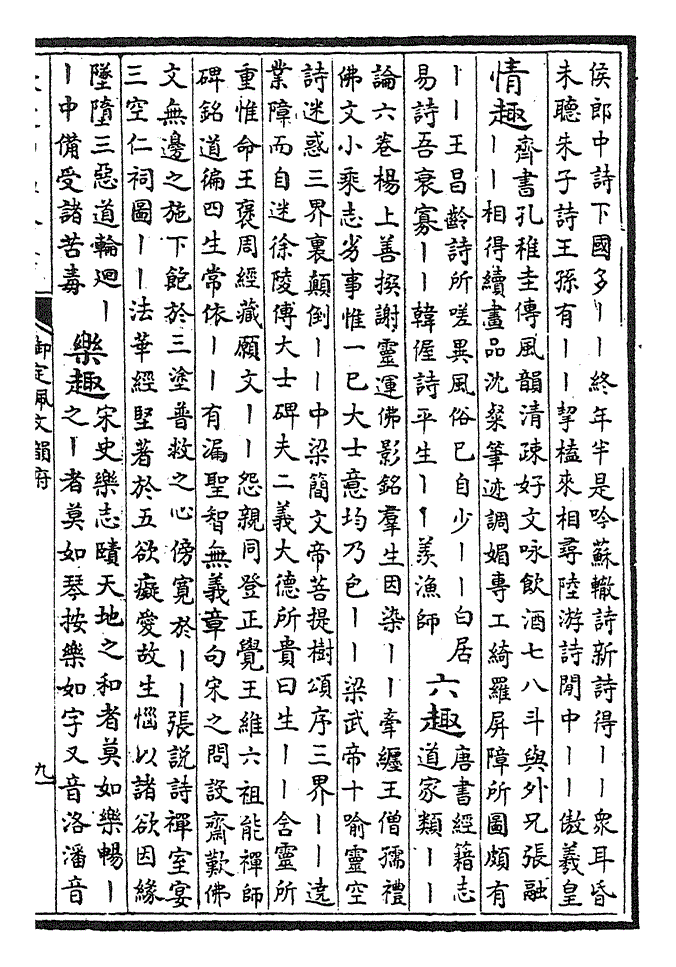 侯郎中詩下國多丨丨終年半是吟蘇轍詩新詩得丨丨衆耳昏
未聽朱子詩王孫有丨丨挈榼來相尋陸游詩閒中丨丨傲羲皇
情趣
齊書孔稚圭傳風韻清疎好文咏飲酒七八斗與外兄張融
丨丨相得續畫品沈粲筆迹調媚專工綺羅屏障所圖頗有
丨丨王昌齡詩所嗟異風俗已自少丨丨白居
易詩吾衰寡丨丨韓偓詩平生丨丨羨漁師
六趣
唐書經籍志
道家類丨丨
論六卷楊上善撰謝靈運佛影銘羣生因染丨丨牽纏王僧孺禮
佛文小乘志劣事惟一已大士意均乃包丨丨梁武帝十喻靈空
詩迷惑三界裏顛倒丨丨中梁簡文帝菩提樹頌序三界丨丨遠
業障而自迷徐陵傅大士碑夫二義大德所貴曰生丨丨含靈所
重惟命王褒周經藏願文丨丨怨親同登正覺王維六祖能禪師
碑銘道徧四生常依丨丨有漏聖智無義章句宋之問設齋歎佛
文無邊之施下飽於三塗普救之心傍寛於丨丨張説詩禪室宴
三空仁祠圖丨丨法華經堅著於五欲癡愛故生惱以諸欲因緣
墜墮三惡道輪廻丨
丨中備受諸苦毒
樂趣
宋史樂志賾天地之和者莫如樂暢丨
之丨者莫如琴按樂如字又音洛潘音
御定佩文韻府
九